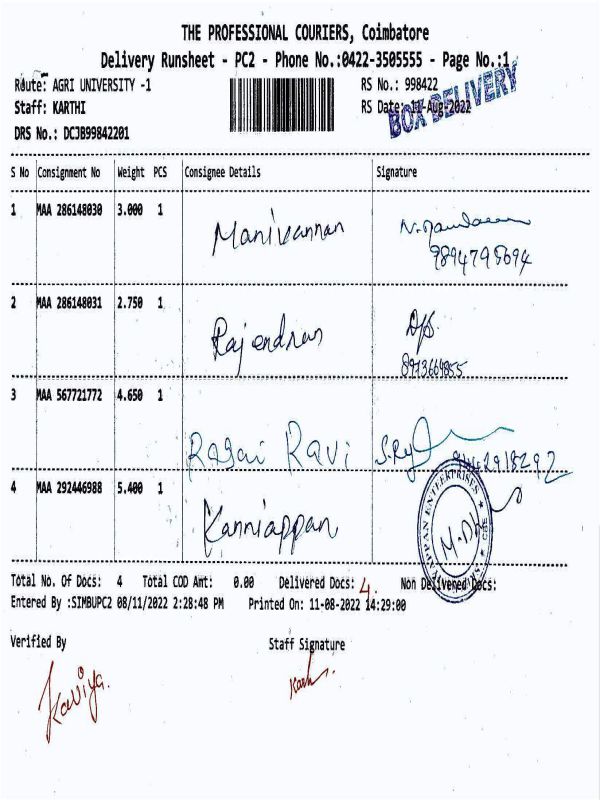 THE PROFESSIONAL COURIERS, Coimbatore
Delivery Runsheet - PC2 - Phone No.:0422-3505555 - Page No.:1
Route: AGRI UNIVERSITY -1
RS No.: 998422
Staff: KARTHI
RS Date: 11-Aug-2022
BOX DELIVERY
DRS No.: DCJB99842201
S No Consignment No Weight PCS Consignee Details Signature
1 MAA 286148030 3.000 1 Manivannan
9894795694
2 MAA 286148031 2.750 1 Rajendran
8973664855
3 MAA 567721772 4.650 1 Ragai Ravi
4 MAA 292446988 5.400 1 Kanniappan
ENTERPRISES CBE
Total No. Of Docs: 4 Total COD Amt: 0.00 Delivered Docs: 4. Non Delivered Docs:
Entered By :SIMBUPC2 08/11/2022 2:28:48 PM Printed On: 11-08-2022 14:29:00
Verified By Staff Signature
Kaviya.